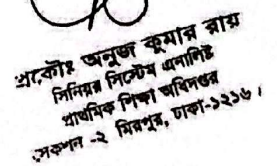 প্রকৌঃ অনুজ কুমার রায়
সিনিয়র সিস্টেম এনালিষ্ট
প্রাথমিক শিক্ষা অধিদপ্তর
সেকশন -২ মিরপুর, ঢাকা-১২১৬।